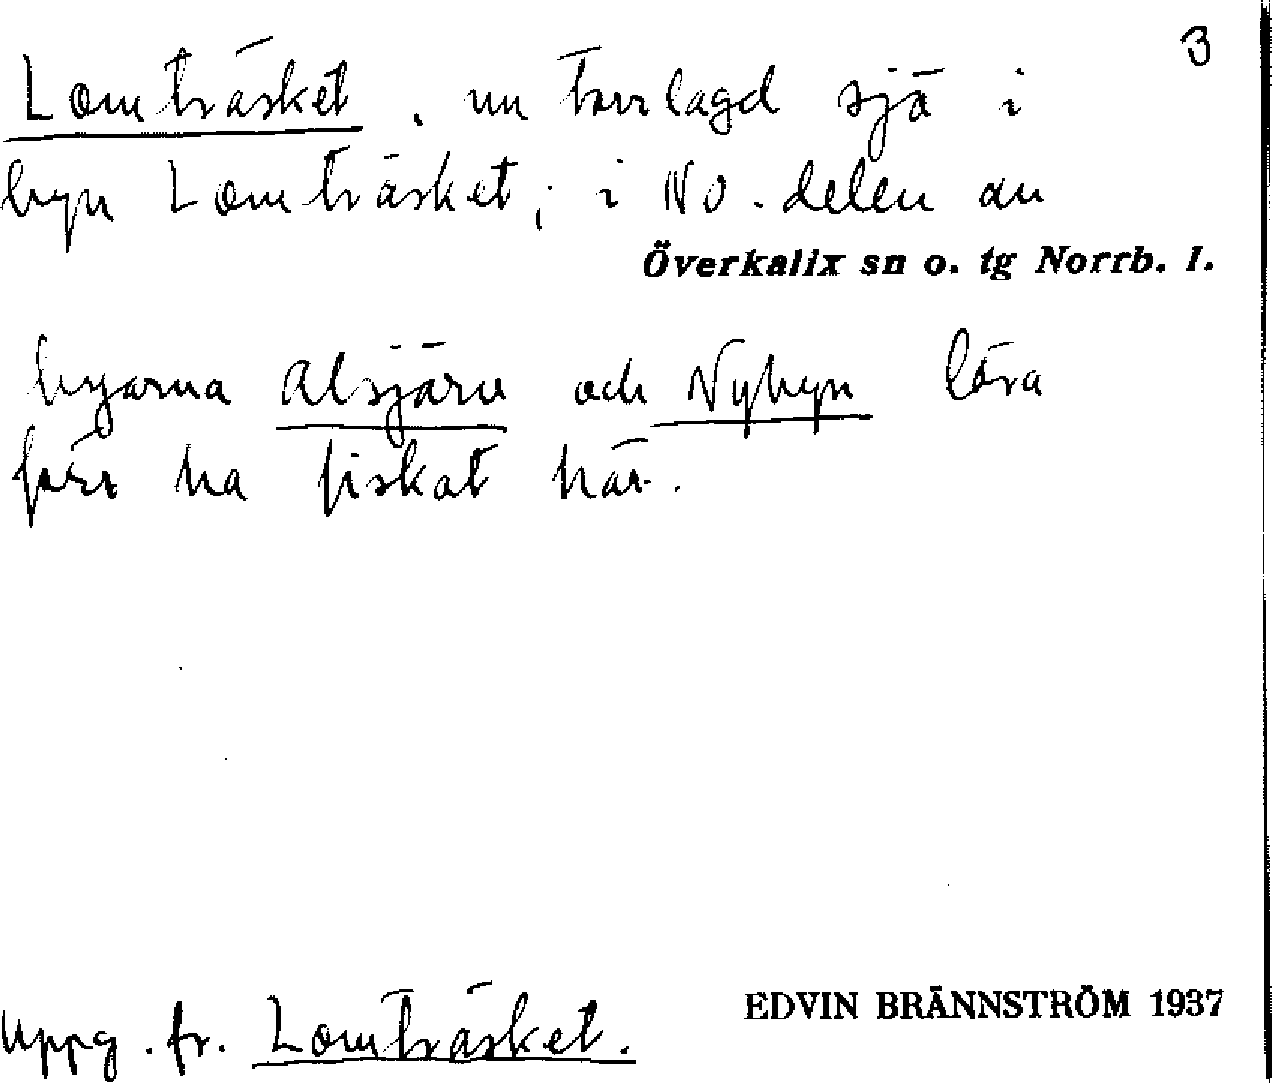 3
Lomträsket, nu torrlagd sjö i
byn Lomträsket, i NO. delen av
Överkalix sn o. tg Norrb. l.
byarna Alsjärv och Nybyn lära
förr ha fiskat här.
Uppg. fr. Lomträsket.
EDVIN BRÄNNSTRÖM 1937